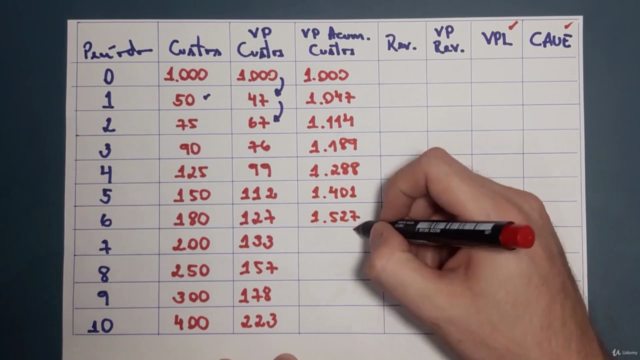 Período Custos VP Custos VP Acum. Custos Rev. VP Rev. VPL CAUE
0 1.000 1.000 1.000
1 50 47 1.047
2 75 67 1.114
3 90 76 1.189
4 125 99 1.288
5 150 112 1.401
6 180 127 1.527
7 200 133
8 250 157
9 300 178
10 400 223
Udemy